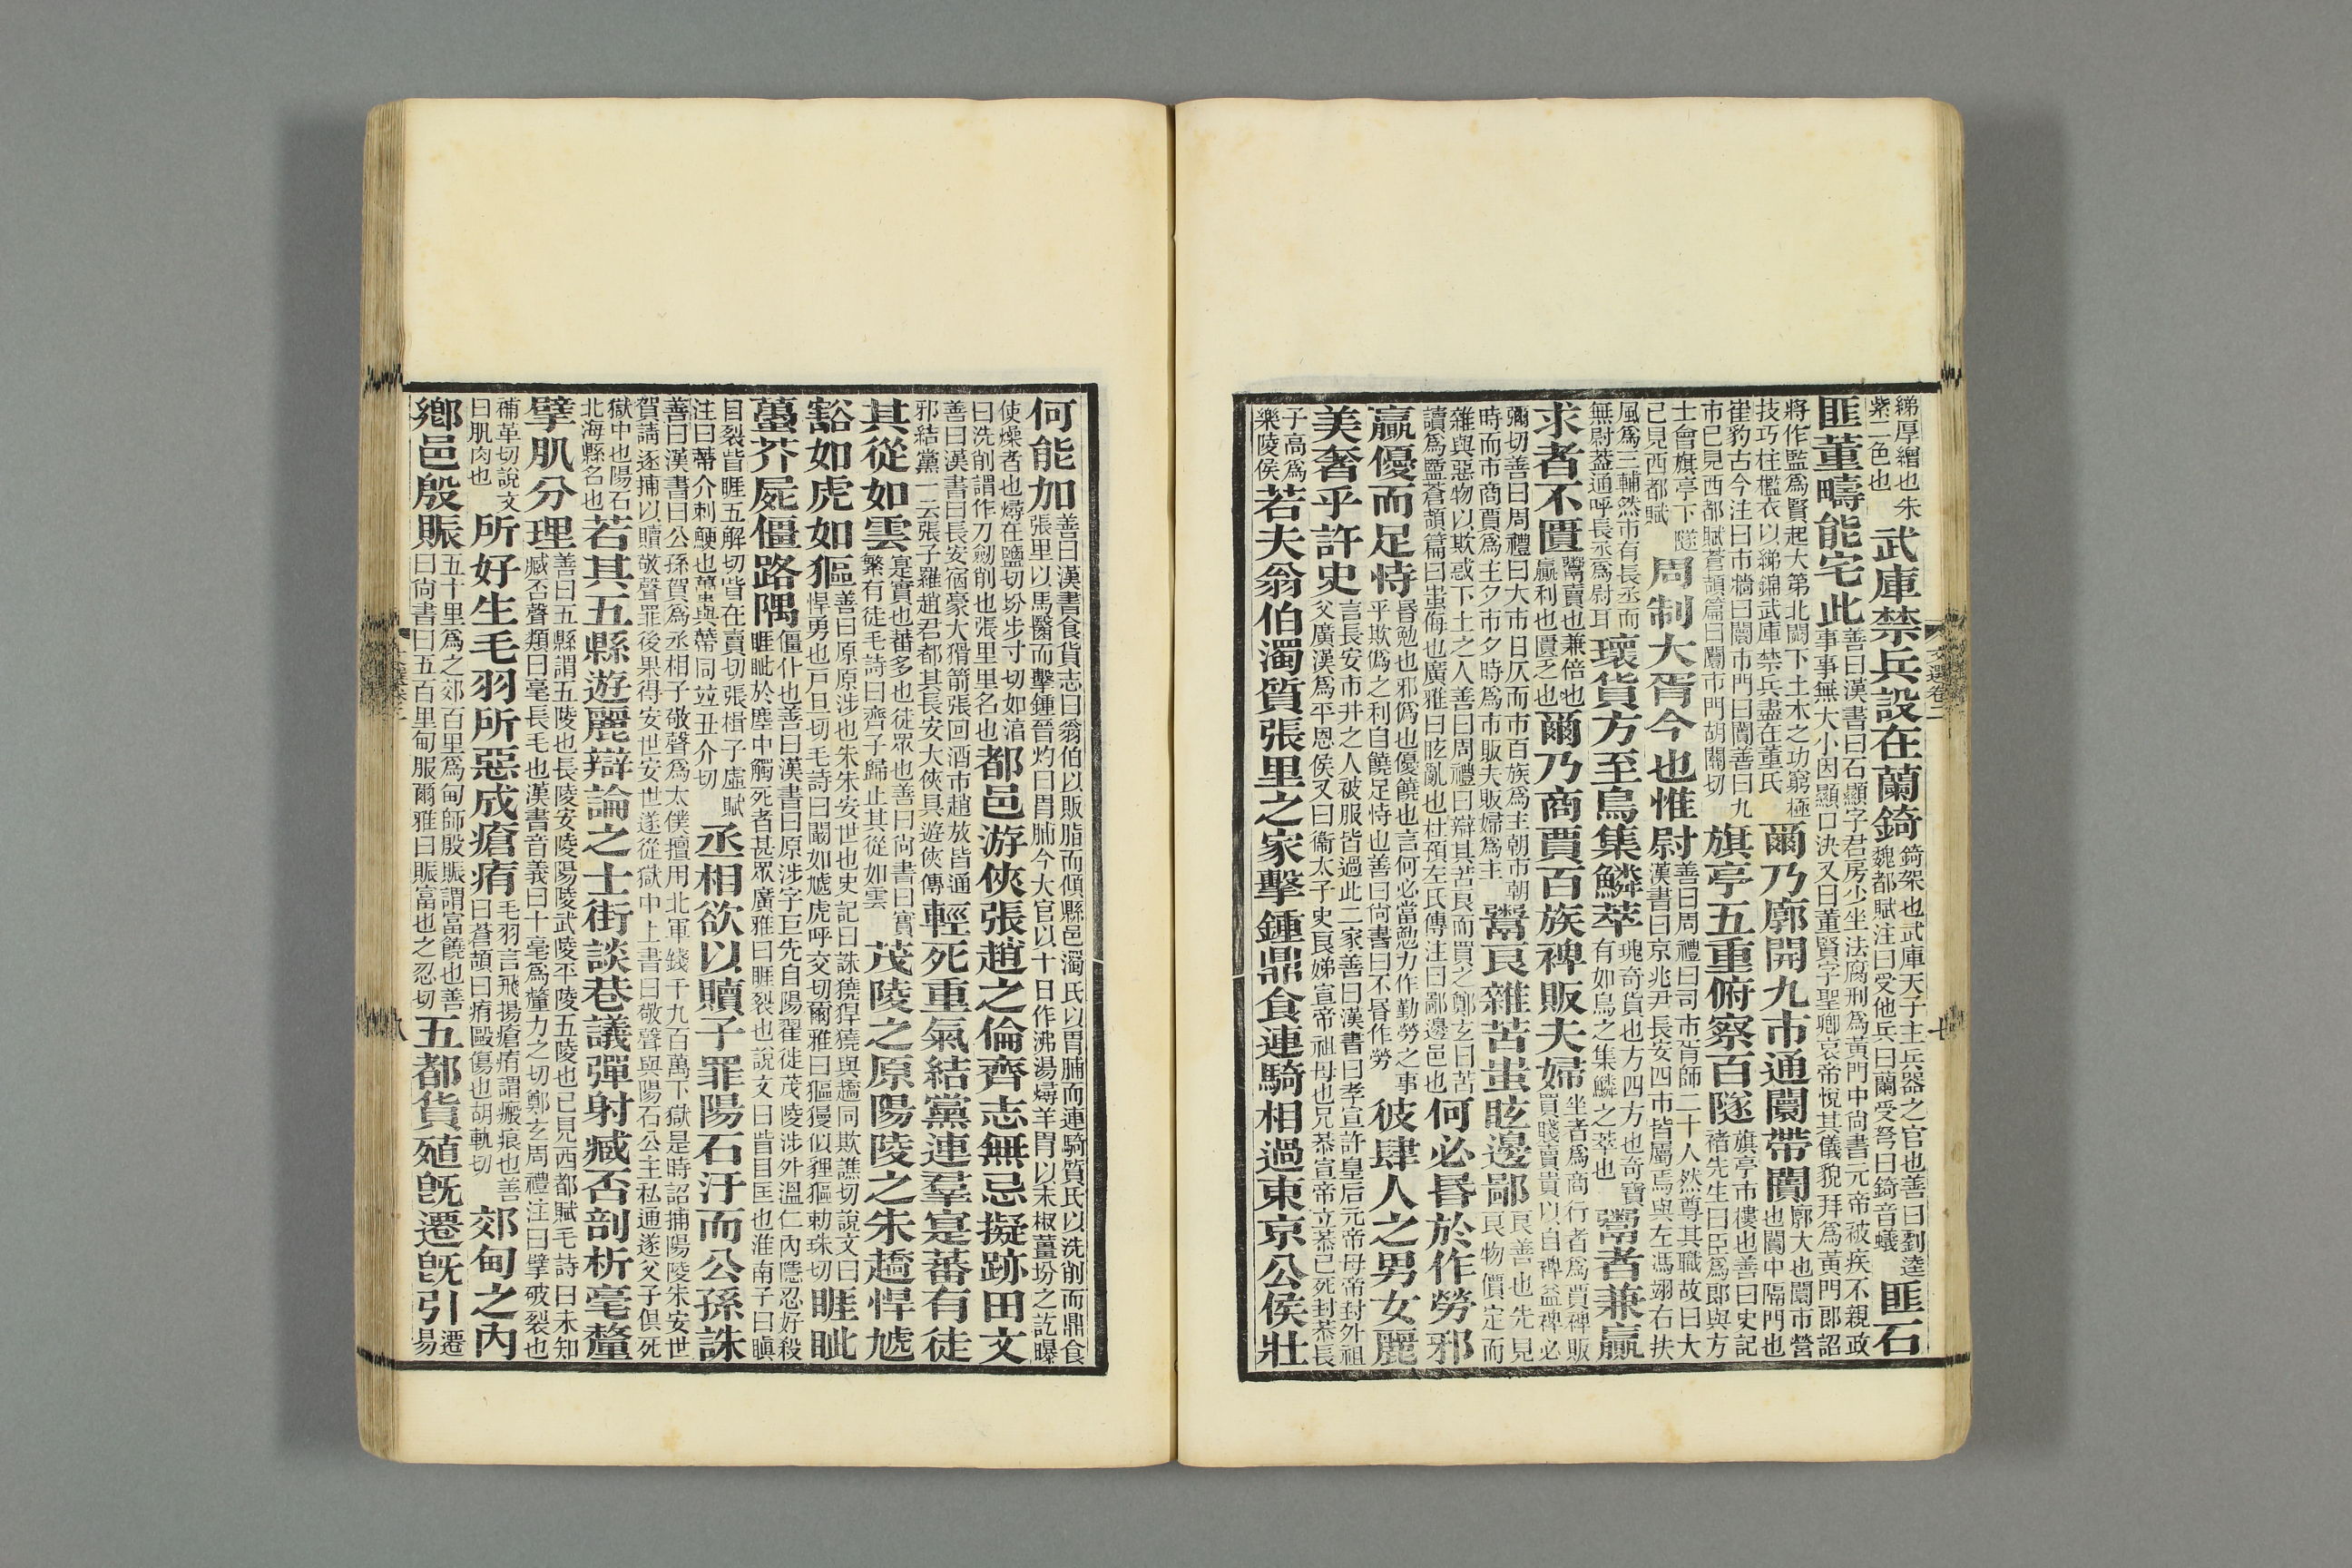 綈厚繒也朱紫二色也武庫禁兵設在蘭錡錡架也武庫天子主兵器之官也善曰劉逵魏都賦注曰受他兵曰蘭受弩曰錡音蟻匪石
匪董疇能宅此善曰漢書曰石顯字君房少坐法腐刑爲黃門中尚書元帝被疾不親政事事無大小因顯口決又曰董賢字聖卿哀帝悅其儀貌拜爲黃門郎詔
將作監爲賢起大第北闕下土木之功窮極技巧柱檻衣以綈錦武庫禁兵盡在董氏爾乃廓開九市通闤帶闠廓大也闤市營也闠中隔門也
崔豹古今注曰市牆曰闤市門曰闠善曰九市已見西都賦蒼頡篇曰闠市門胡關切旗亭五重俯察百隧旗亭市樓也善曰史記褚先生曰臣爲郎與方
士會旗亭下隧已見西都賦周制大胥今也惟尉善曰周禮曰司市胥師二十人然尊其職故曰大漢書曰京兆尹長安四市皆屬焉與左馮翊右扶
風爲三輔然市有長丞而無尉蓋通呼長丞爲尉耳瓌貨方至鳥集鱗萃瑰奇貨也方四方也奇寶有如鳥之集鱗之萃也鬻者兼贏
求者不匱鬻賣也兼倍也贏利也匱乏也爾乃商賈百族裨販夫婦坐者爲商行者爲賈裨販買賤賣貴以自裨益裨必
彌切善曰周禮曰大市日仄而市百族爲主朝市朝時而市商賈爲主夕市夕時爲市販夫販婦爲主鬻良雜苦蚩眩邊鄙良善也先見良物價定而
雜與惡物以欺惑下土之人善曰周禮曰辯其苦良而買之鄭玄曰苦讀爲盬蒼頡篇曰蚩侮也廣雅曰眩亂也杜預左氏傳注曰鄙邊邑也何必昬於作勞邪
贏優而足恃昬勉也邪僞也優饒也言何必當勉力作勤勞之事乎欺僞之利自饒足恃也善曰尚書曰不昬作勞彼肆人之男女麗
美奢乎許史言長安市井之人被服皆過此二家善曰漢書曰孝宣許皇后元帝母帝封外祖父廣漢爲平恩侯又曰衞太子史良娣宣帝祖母也兄恭宣帝立恭已死封恭長
子高爲樂陵侯若夫翁伯濁質張里之家擊鍾鼎食連騎相過東京公侯壯
何能加善曰漢書食貨志曰翁伯以販脂而傾縣邑濁氏以胃脯而連騎質氏以洗削而鼎食張里以馬醫而擊鍾晉灼曰胃脯今大官以十日作沸湯燖羊胃以末椒薑坋之訖曝
使燥者也燖在鹽切坋步寸切如淳曰洗削謂作刀劒削也張里里名也都邑游俠張趙之倫齊志無忌擬跡田文
善曰漢書曰長安宿豪大猾箭張回酒市趙放皆通邪結黨一云張子羅趙君都其長安大俠具遊俠傳輕死重氣結黨連羣寔蕃有徒
其從如雲寔實也蕃多也徒眾也善曰尚書曰寔繁有徒毛詩曰齊子歸止其從如雲茂陵之原陽陵之朱趫悍虓
豁如虎如貙善曰原原涉也朱朱安世也史記曰誅獟猂獟與趫同欺譙切說文曰悍勇也戶旦切毛詩曰闞如虓虎呼交切爾雅曰貙獌似貍貙勑珠切睚眦
蠆芥屍僵路隅僵仆也善曰漢書曰原涉字巨先自陽翟徙茂陵涉外溫仁內隱忍好殺睚眦於塵中觸死者甚眾廣雅曰睚裂也說文曰眥目匡也淮南子曰瞋
目裂眥睚五解切眥在賣切張楫子虛賦注曰蔕介刺鯁也蠆與蔕同竝丑介切丞相欲以贖子罪陽石汙而公孫誅
善曰漢書曰公孫賀爲丞相子敬聲爲太僕擅用北軍錢千九百萬下獄是時詔捕陽陵朱安世賀請逐捕以贖敬聲罪後果得安世安世遂從獄中上書曰敬聲與陽石公主私通遂父子俱死
獄中也陽石北海縣名也若其五縣遊麗辯論之士街談巷議彈射臧否剖析毫釐
擘肌分理善曰五縣謂五陵也長陵安陵陽陵武陵平陵五陵也已見西都賦毛詩曰未知臧否聲類曰毫長毛也漢書音義曰十毫爲釐力之切鄭玄周禮注曰擘破裂也
補革切說文曰肌肉也所好生毛羽所惡成瘡痏毛羽言飛揚瘡痏謂瘢痕也善曰蒼頡曰痏毆傷也胡軌切郊甸之內
鄉邑殷賑五十里爲之郊百里爲甸師殷賑謂富饒也善曰尚書曰五百里甸服爾雅曰賑富也之忍切五都貨殖旣遷旣引遷易